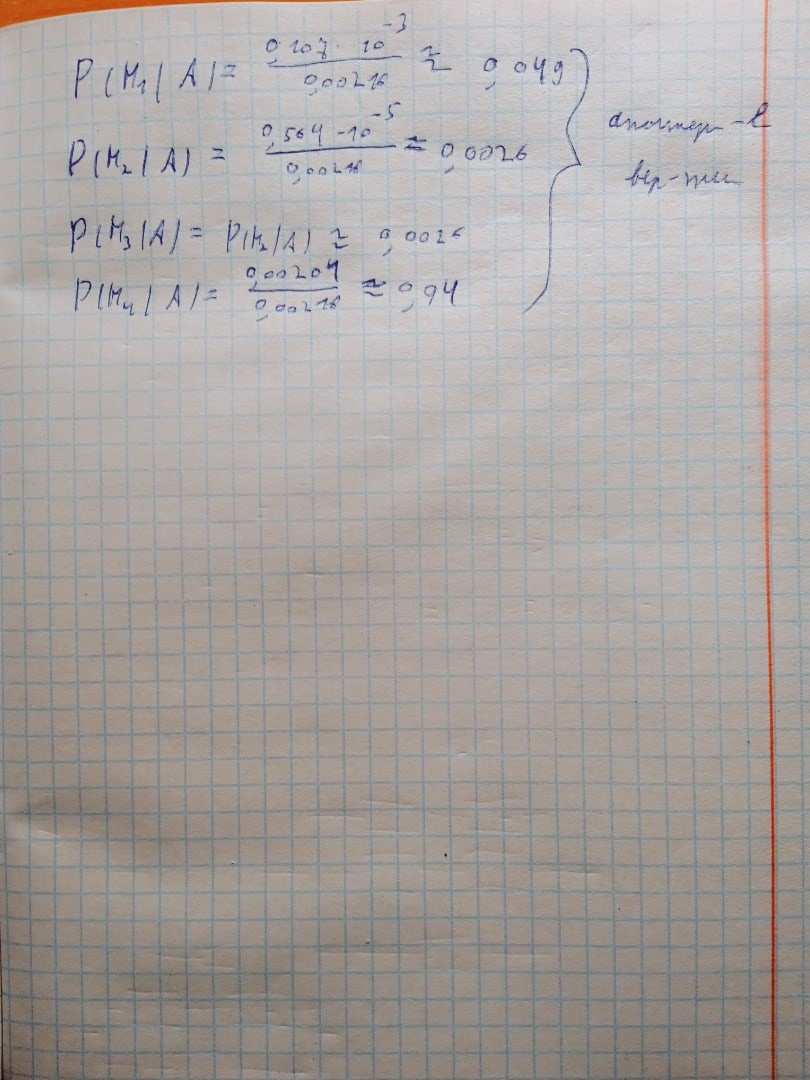 P(H₁|A) = 0,107·10⁻³ / 0,00218 ≈ 0,049
P(H₂|A) = 0,564·10⁻⁵ / 0,00218 ≈ 0,0026
P(H₃|A) = P(H₂|A) ≈ 0,0026
P(H₄|A) = 0,00204 / 0,00218 ≈ 0,94
апостери-е
вер-ти